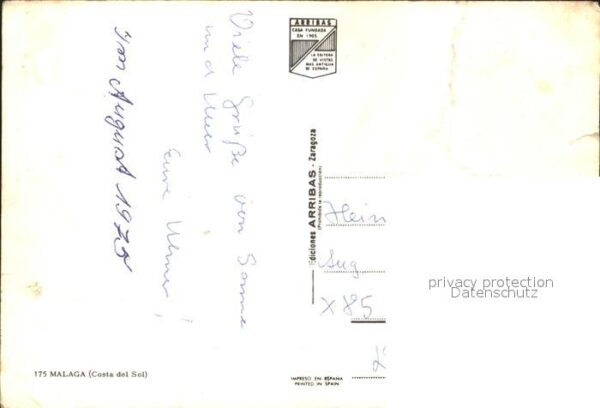 Im August 1975
Viele Grüße von Sonne
und Meer
Eure Ulmer!
ARRIBAS
CASA FUNDADA
EN 1905
LA EDITORA
DE VISTAS
MAS ANTIGUA
DE ESPAÑA
Ediciones ARRIBAS - Zaragoza
(Prohibida la reproducción)
Hein
Aug
X 85
privacy protection
Datenschutz
175 MALAGA (Costa del Sol)
IMPRESO EN ESPAÑA
PRINTED IN SPAIN